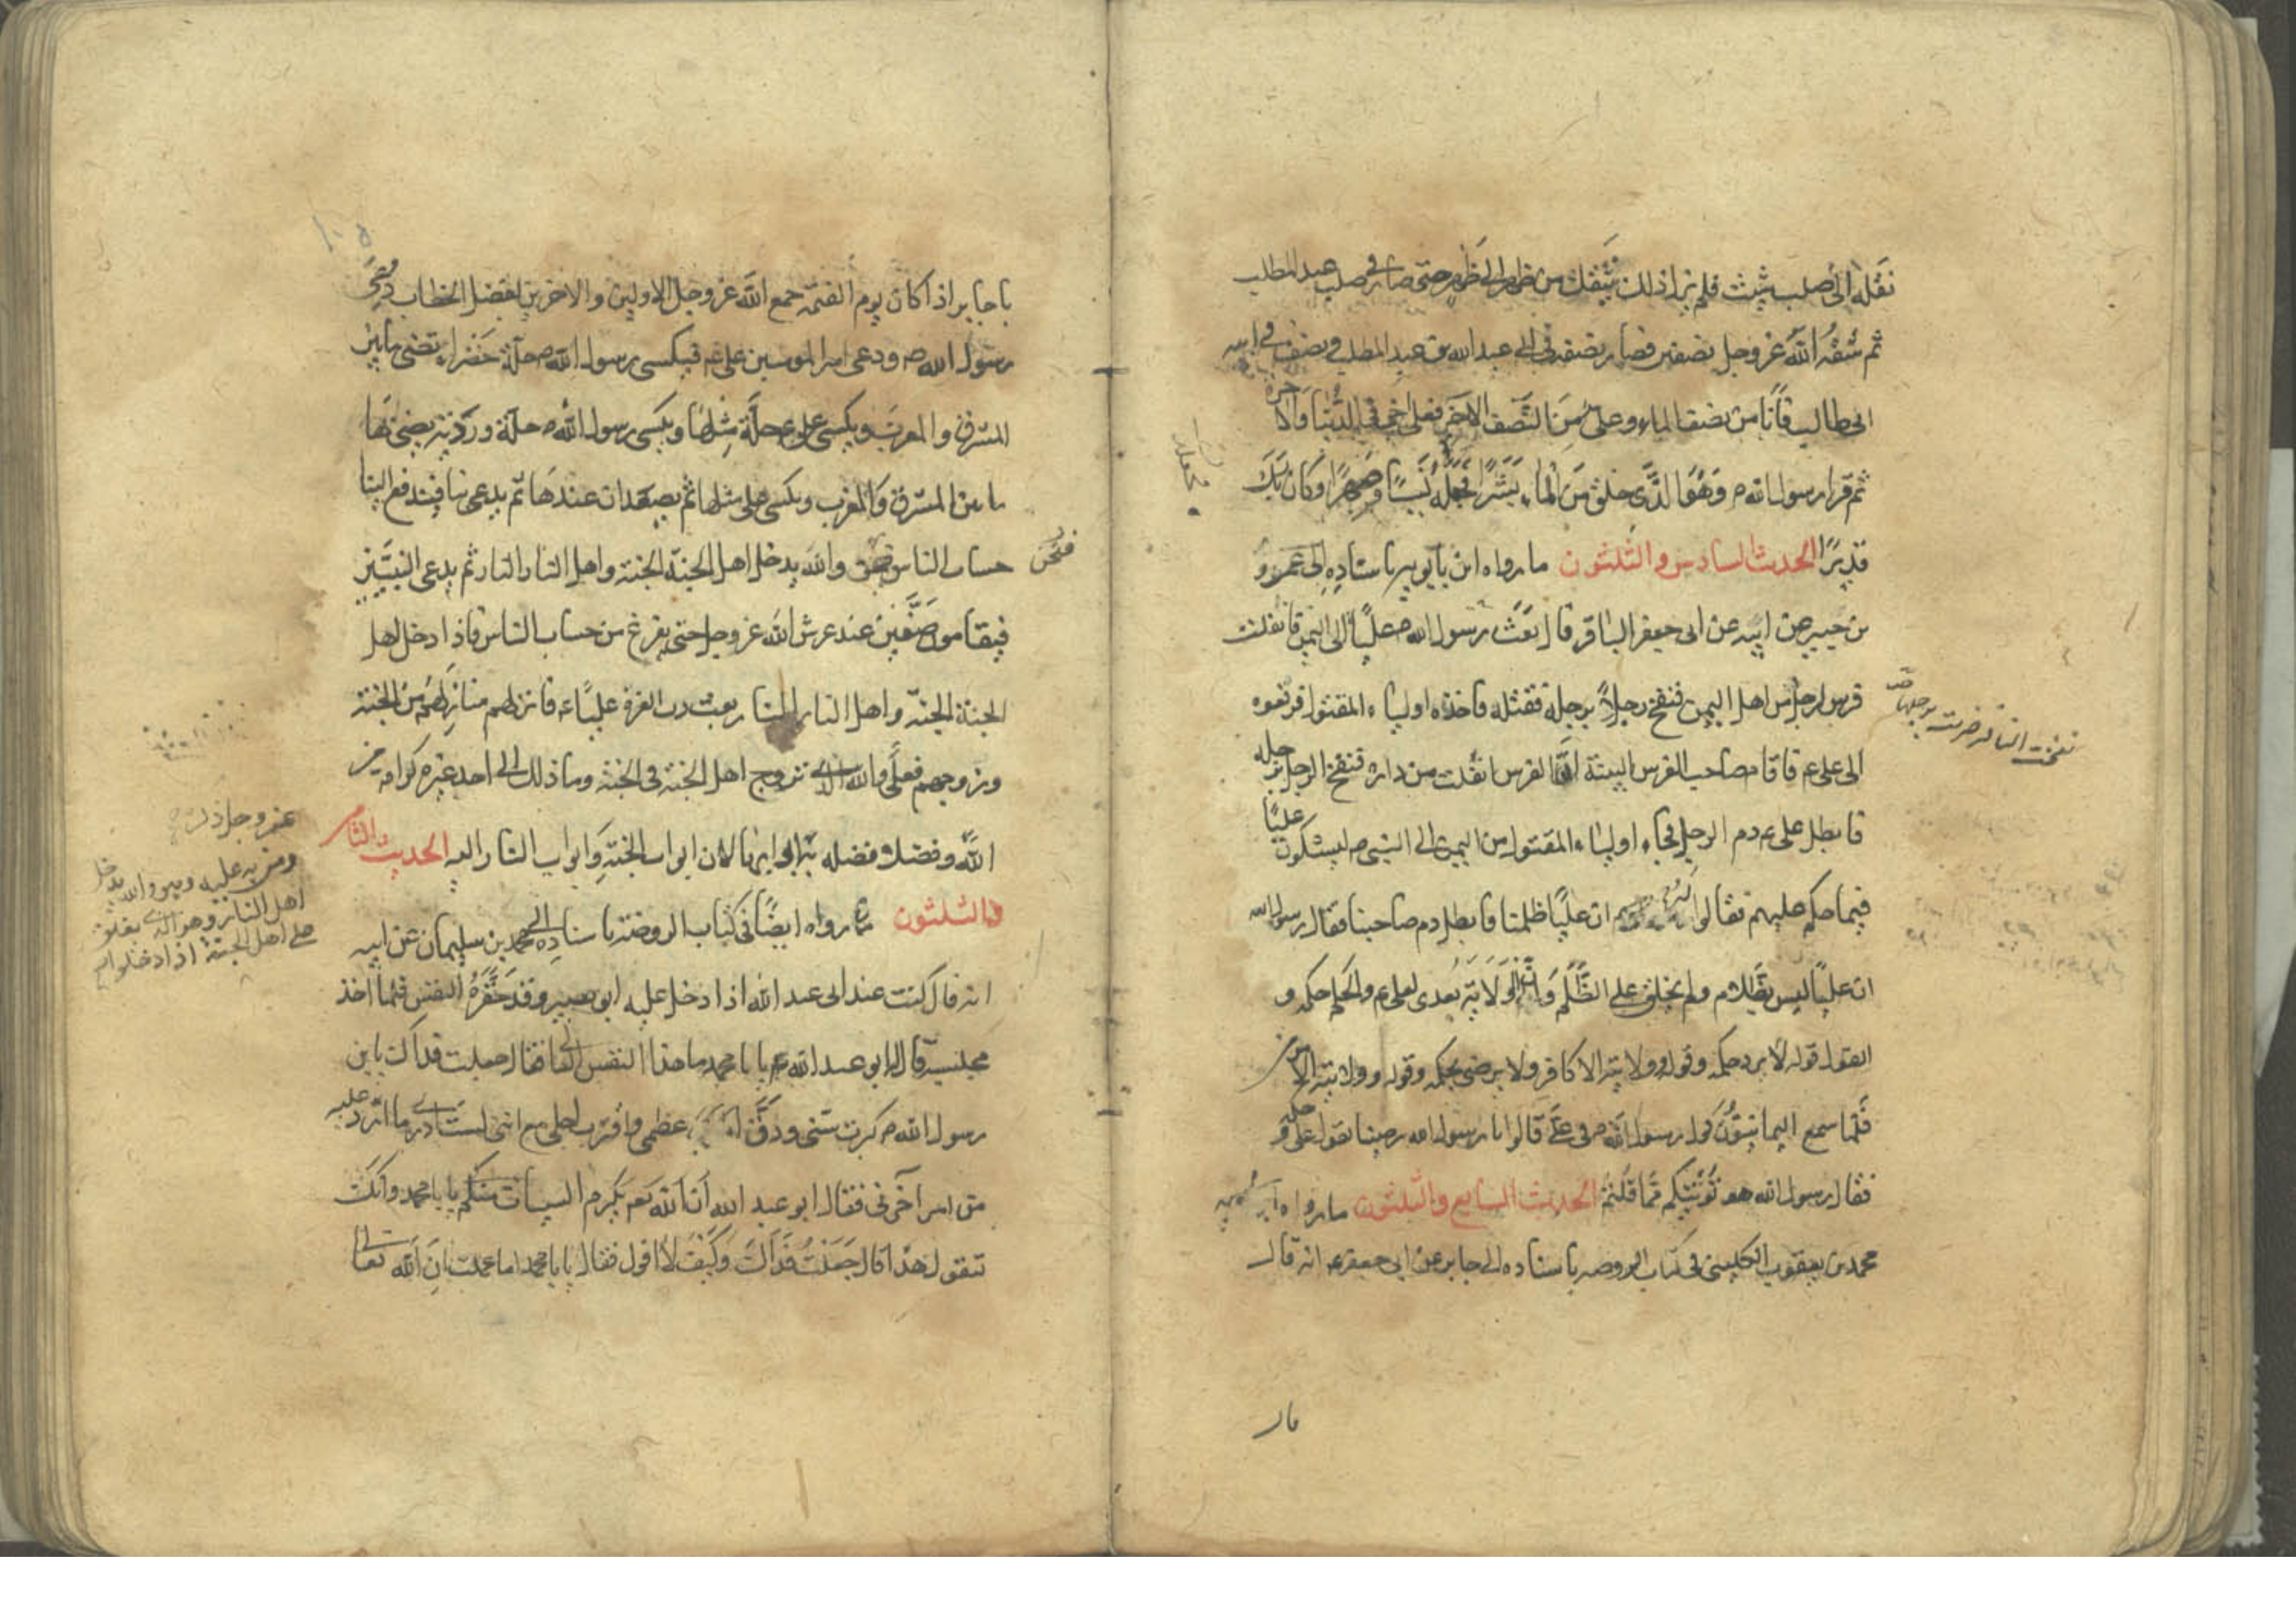 نقله الى صلب شيث فلم يزل ذلك ينتقل من ظهر الى ظهر حتى صار في صلب عبد المطلب
ثم شقه الله عز وجل نصفين فصار نصفه في ابي عبد الله بن عبد المطلب ونصف في ابي
ابي طالب فأنا من نصف الماء وعلى من النصف الاخر فعلى اخي في الدنيا والآخرة
ثم قرأ رسول الله ص وَهُوَ الَّذى خلق مِنَ الماءِ بَشَرًا فجعله نَسَبًا وَصِهرًا وكان ربك
قديرًا الحديث السادس والثلثون ما رواه ابن بابويه باسناده الى عمرو
بن عن ابيه عن ابى جعفر الباقر قال بعث رسول الله ص عليًا الى اليمن فانفلت
فرس لرجل من اهل اليمن فنفح رجلاً برجله فقتله فاخذه اولياء المقتول فرفعوه
الى على ع فاقام صاحب الفرس البينة ان الفرس انفلت من داره فنفح الرجل برجله
فابطل على ع دم الرجل فجاء اولياء المقتول من اليمن الى النبي ص يشكون عليًا
فيما حكم عليهم فقالوا ان عليًا ظلمنا وابطل دم صاحبنا فقال رسول الله
ان عليًا ليس بظلام ولم يخلق على للظلم وان الولاية بعدى لعلى ع والحكم حكمه و
القول قوله لا يرد حكمه وقوله وولايته الا كافر ولا يرضى بحكمه وقوله وولايته الا مؤمن
فلما سمع اليمانيون قول رسول الله ص في على قالوا يا رسول الله رضينا بقول على وحكمه
فقال رسول الله ص هو توبتكم مما قلتم الحديث السابع والثلثون ما رواه
محمد بن يعقوب الكليني في كتاب الروضة باسناده الى جابر عن ابى جعفر ع انه قال
نفحت الناقة ضربت برجلها
يا جابر اذا كان يوم القيمة جمع الله عز وجل الاولين والاخرين لفصل الخطاب دعى
رسول الله ص ودعى امير المومنين على ع فيكسى رسول الله ص حلّة خضراء تضئ ما بين
المشرق والمغرب ويكسى على ع حلّة مثلها ويكسى رسول الله ص حلّة وردية يضئ لها
ما بين المشرق والمغرب ويكسى على مثلها ثم يصعدان عندها ثم يدعى بنا فيدفع الينا
حساب الناس فنحن والله يدخل اهل الجنة الجنة واهل النار النار ثم يدعى النبيين
فيقامون صفين عند عرش الله عز وجل حتى يفرغ من حساب الناس فاذا دخل اهل
الجنة الجنة واهل النار النار بعث رب العزة عليًا ع فانزلهم منازلهم من الجنة
وزوجهم فعلى والله الذى تزوج اهل الجنة في الجنة وما ذلك الى احد غيره كرامة من
الله وفضلا فضله به لان ابواب الجنة وابواب النار اليه الحديث الثامن
والثلثون ما رواه ايضًا في كتاب الروضة باسناده الى محمد بن سليمان عن ابيه
انه قال كنت عند ابى عبد الله اذا دخل عليه ابو بصير وقد حفزه النفس فلما اخذ
مجلسه قال له ابو عبد الله ع يا با محمد ما هذا النفس العالي فقال جعلت فداك يابن
رسول الله ص كبرت سنى ودق عظمى واقترب اجلى مع اننى لست ادرى ما ارد عليه
من امر آخرتى فقال ابو عبد الله ان الله تع يكرم الشباب منكم يا با محمد وانك
تقول هذا قال جعلت فداك وكيف لا اقول فقال يا با محمد اما علمت ان الله تعالى
فنحن
عز وجل ذكره
ومن به عليه وهو والله يدخل
اهل النار وهو الذى يغلق
على اهل الجنة اذا دخلوا